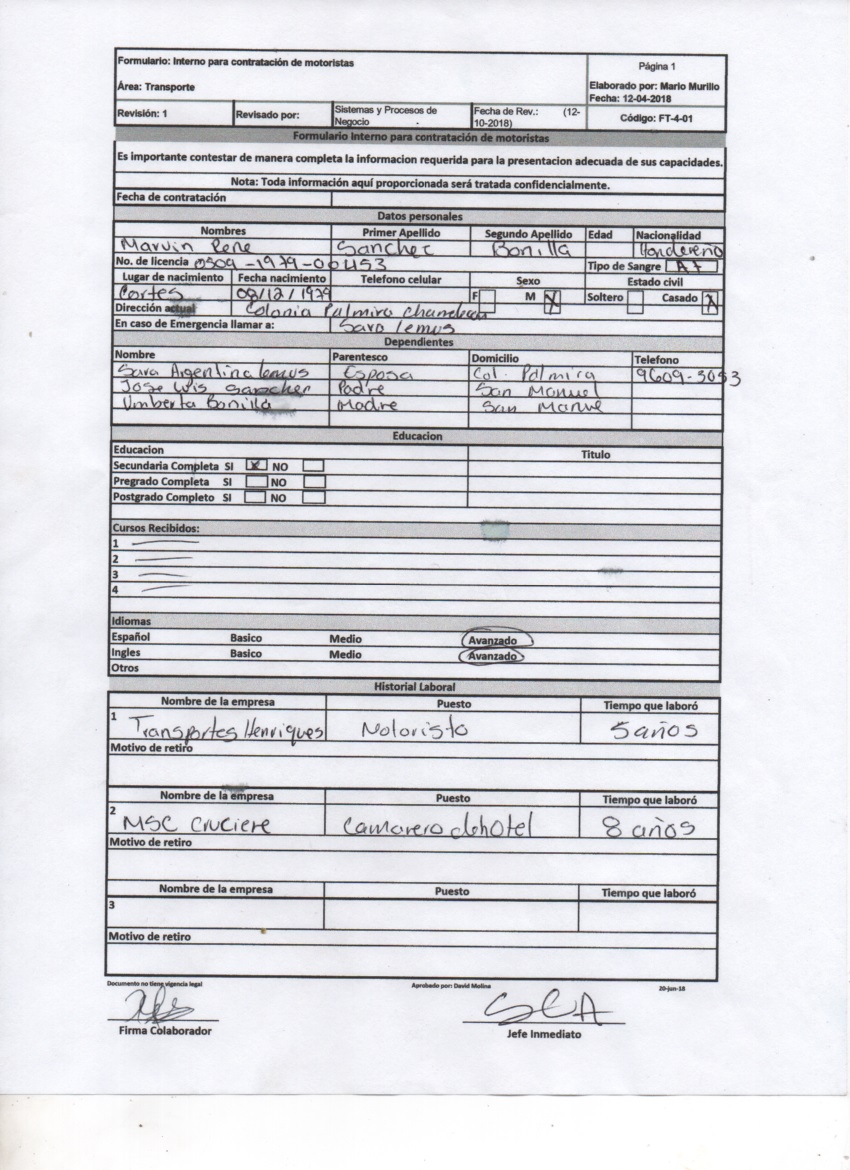 Formulario: Interno para contratación de motoristas
Página 1
Área: Transporte
Elaborado por: Mario Murillo
Fecha: 12-04-2018
Revisión: 1 Revisado por: Sistemas y Procesos de Negocio Fecha de Rev.: (12-10-2018) Código: FT-4-01
Formulario Interno para contratación de motoristas
Es importante contestar de manera completa la informacion requerida para la presentacion adecuada de sus capacidades.
Nota: Toda información aquí proporcionada será tratada confidencialmente.
Fecha de contratación
Datos personales
Nombres Primer Apellido Segundo Apellido Edad Nacionalidad
Marvin Rene Sanchez Bonilla Hondereño
No. de licencia 0509-1979-00453
Tipo de Sangre A+
Lugar de nacimiento Fecha nacimiento Telefono celular Sexo Estado civil
Cortes 08/12/1979 F M X Soltero Casado X
Dirección actual Colonia Palmira
En caso de Emergencia llamar a: Sara lemus
Dependientes
Nombre Parentesco Domicilio Telefono
Sara Argentina lemus Esposa Col. Palmira 9609-5053
Jose Luis Sanchez Padre San Manuel
Umberta Bonilla Madre San Manue
Educacion
Educacion Titulo
Secundaria Completa SI X NO
Pregrado Completa SI NO
Postgrado Completo SI NO
Cursos Recibidos:
1
2
3
4
Idiomas
Español Basico Medio Avanzado
Ingles Basico Medio Avanzado
Otros
Historial Laboral
Nombre de la empresa Puesto Tiempo que laboró
1 Transportes Henriques Motorista 5 años
Motivo de retiro
Nombre de la empresa Puesto Tiempo que laboró
2 MSC Cruciere Camarero de hotel 8 años
Motivo de retiro
Nombre de la empresa Puesto Tiempo que laboró
3
Motivo de retiro
Documento no tiene vigencia legal Aprobado por: David Molina 20-jun-18
Firma Colaborador Jefe Inmediato